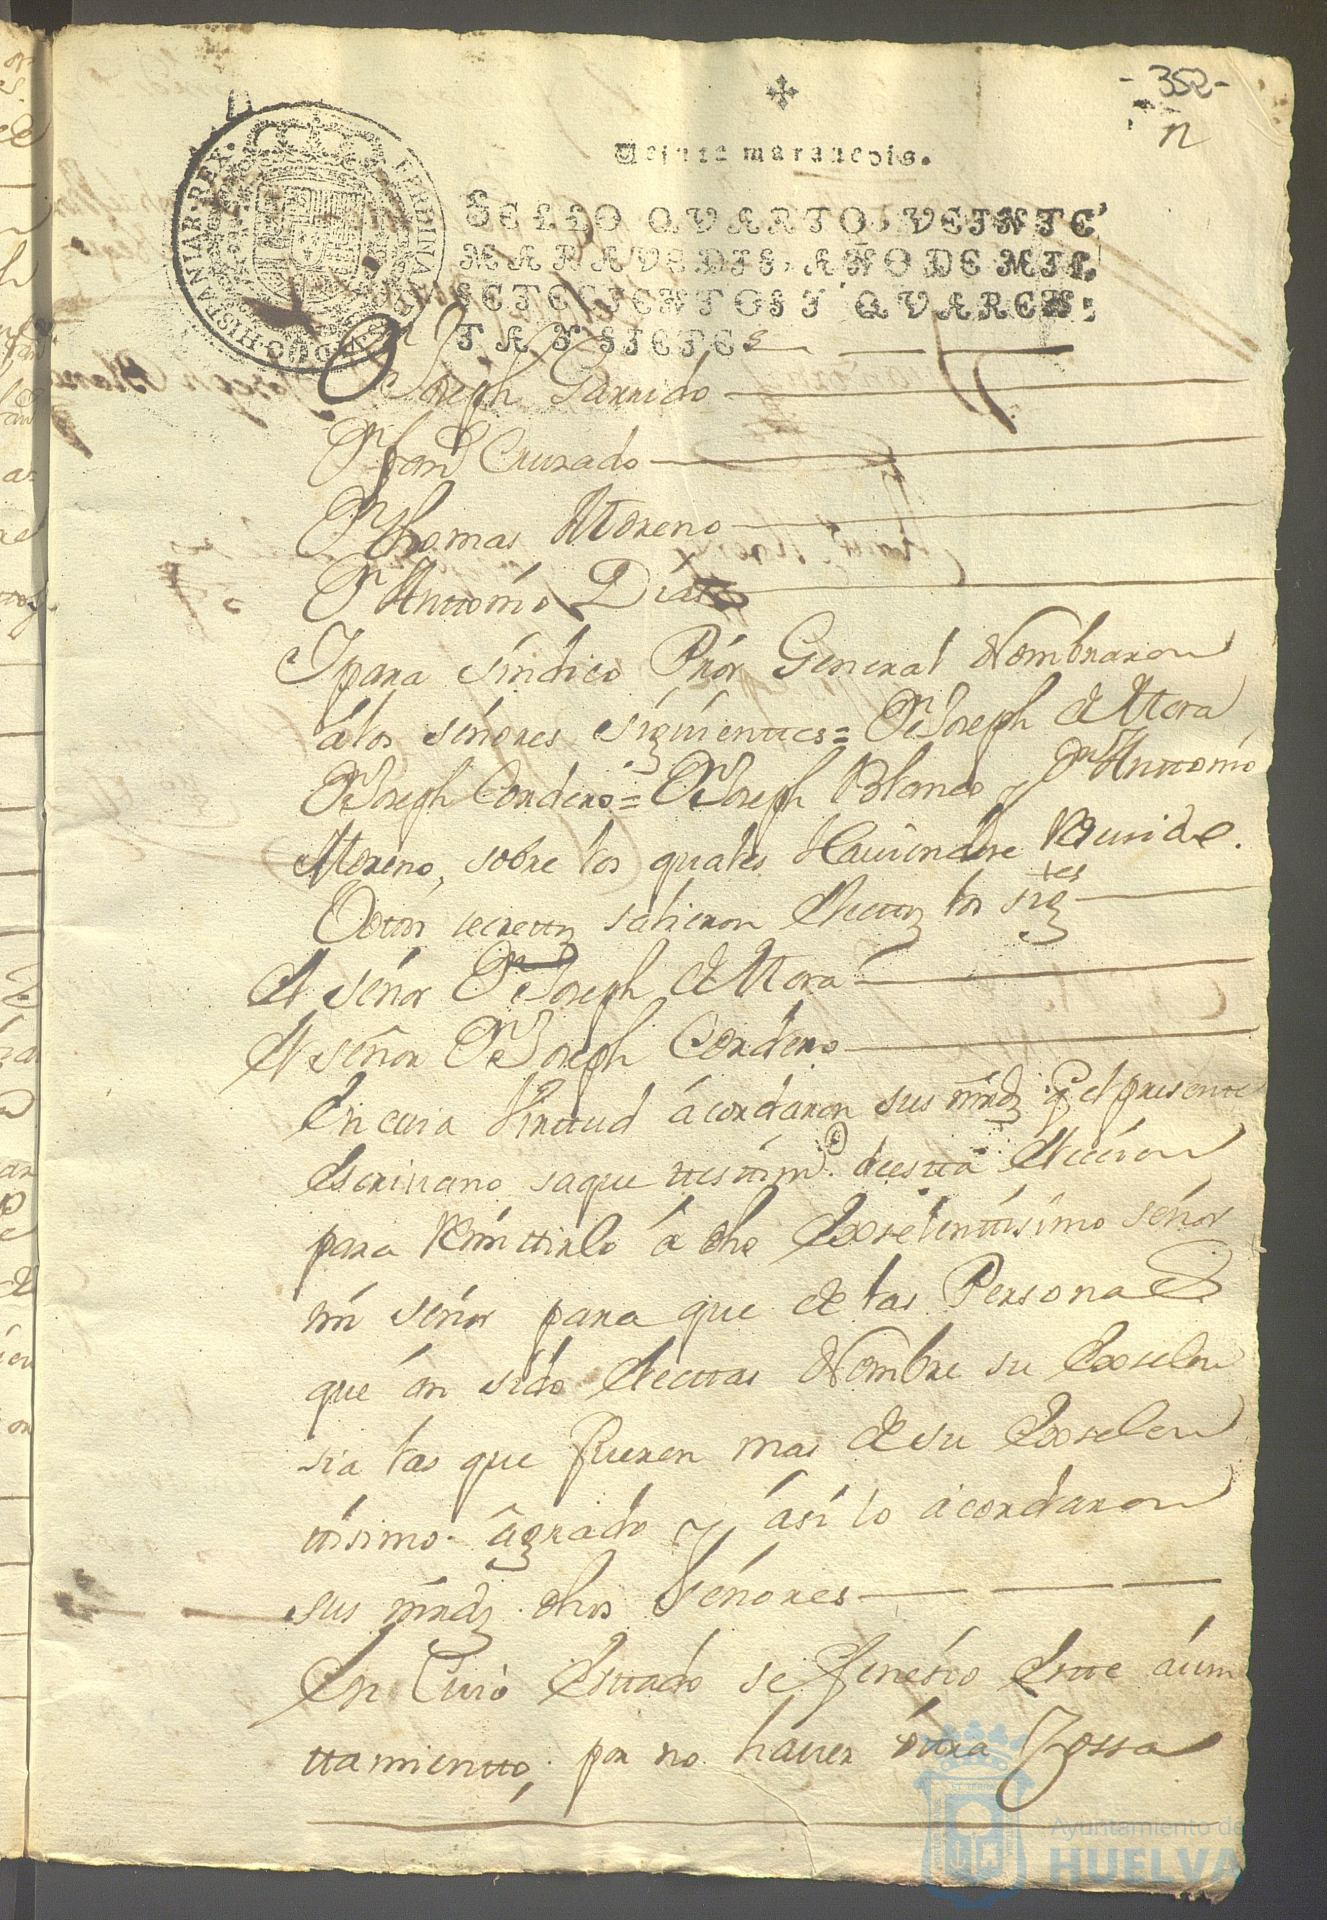 -352-
n
Veinte maravedis.
SELLO QVARTO, VEINTE
MARAVEDIS, AÑO DE MIL
SETECIENTOS Y QVAREN-
TA Y SIETE
HISPANIAR. REX
Dn Joseph Garrido
Dn Juan Cruzado
Dn Thomas Moreno
Dn Anttonio Diaz
Y para sindico Pror General Nombraron
á los señores siguienttes = Dn Joseph de Mora
Dn Joseph Cordero = Dn Joseph Blanco y Dn Anttonio
Moreno, sobre los quales Haviendose
Votos secrettos salieron Electtos los sigtes
El señor Dn Joseph de Mora
El señor Dn Joseph Cordero
En cuia Virttud ácordaron sus mrds q el presentte
Escrivano saque ttesttimo deestta Elección
para Remittirlo á dho Exselenttisimo señor
mi señor para que de las Personas
que án sido Electtas Nombre su Exselen
sia las que fueren mas de su Exselen
ttisimo ágrado y ási lo ácordaron
sus mrds dhos Señores
En Cuio Esttado se fenesio Estte áiun
ttamientto, por no haver ottra Cossa
Ayuntamiento de
HUELVA